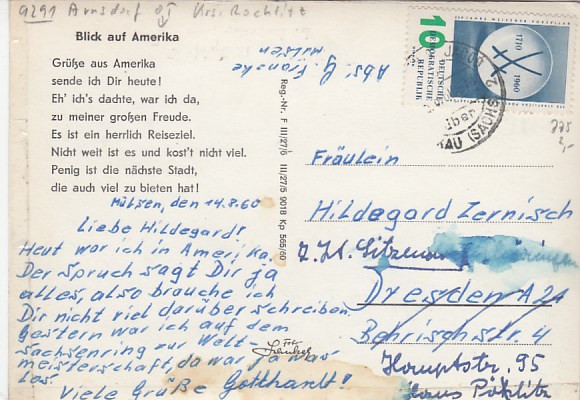 9291 Arnsdorf
Blick auf Amerika
Grüße aus Amerika
sende ich Dir heute!
Eh' ich's dachte, war ich da,
zu meiner großen Freude.
Es ist ein herrlich Reiseziel.
Nicht weit ist es und kost't nicht viel.
Penig ist die nächste Stadt,
die auch viel zu bieten hat!
Mülsen, den 14.8.60
Liebe Hildegard!
Heut war ich in Amerika.
Der Spruch sagt Dir ja
alles, also brauche ich
Dir nicht viel darüber schreiben
Gestern war ich auf dem
Sachsenring zur Welt-
meisterschaft, da war ja was
los.
Viele Grüße Gotthardt!
Abs. G. Francke
Mülsen
Reg.-Nr. F III/27/6 III/27/5 9018 Kp 565/60
10
DEUTSCHE
DEMOKRATISCHE
REPUBLIK
1710
1960
(SACHS) 2
Fräulein
Hildegard Zernisch
z. Zt.
Dresden A 21
Behrischstr. 4
Hauptstr. 95